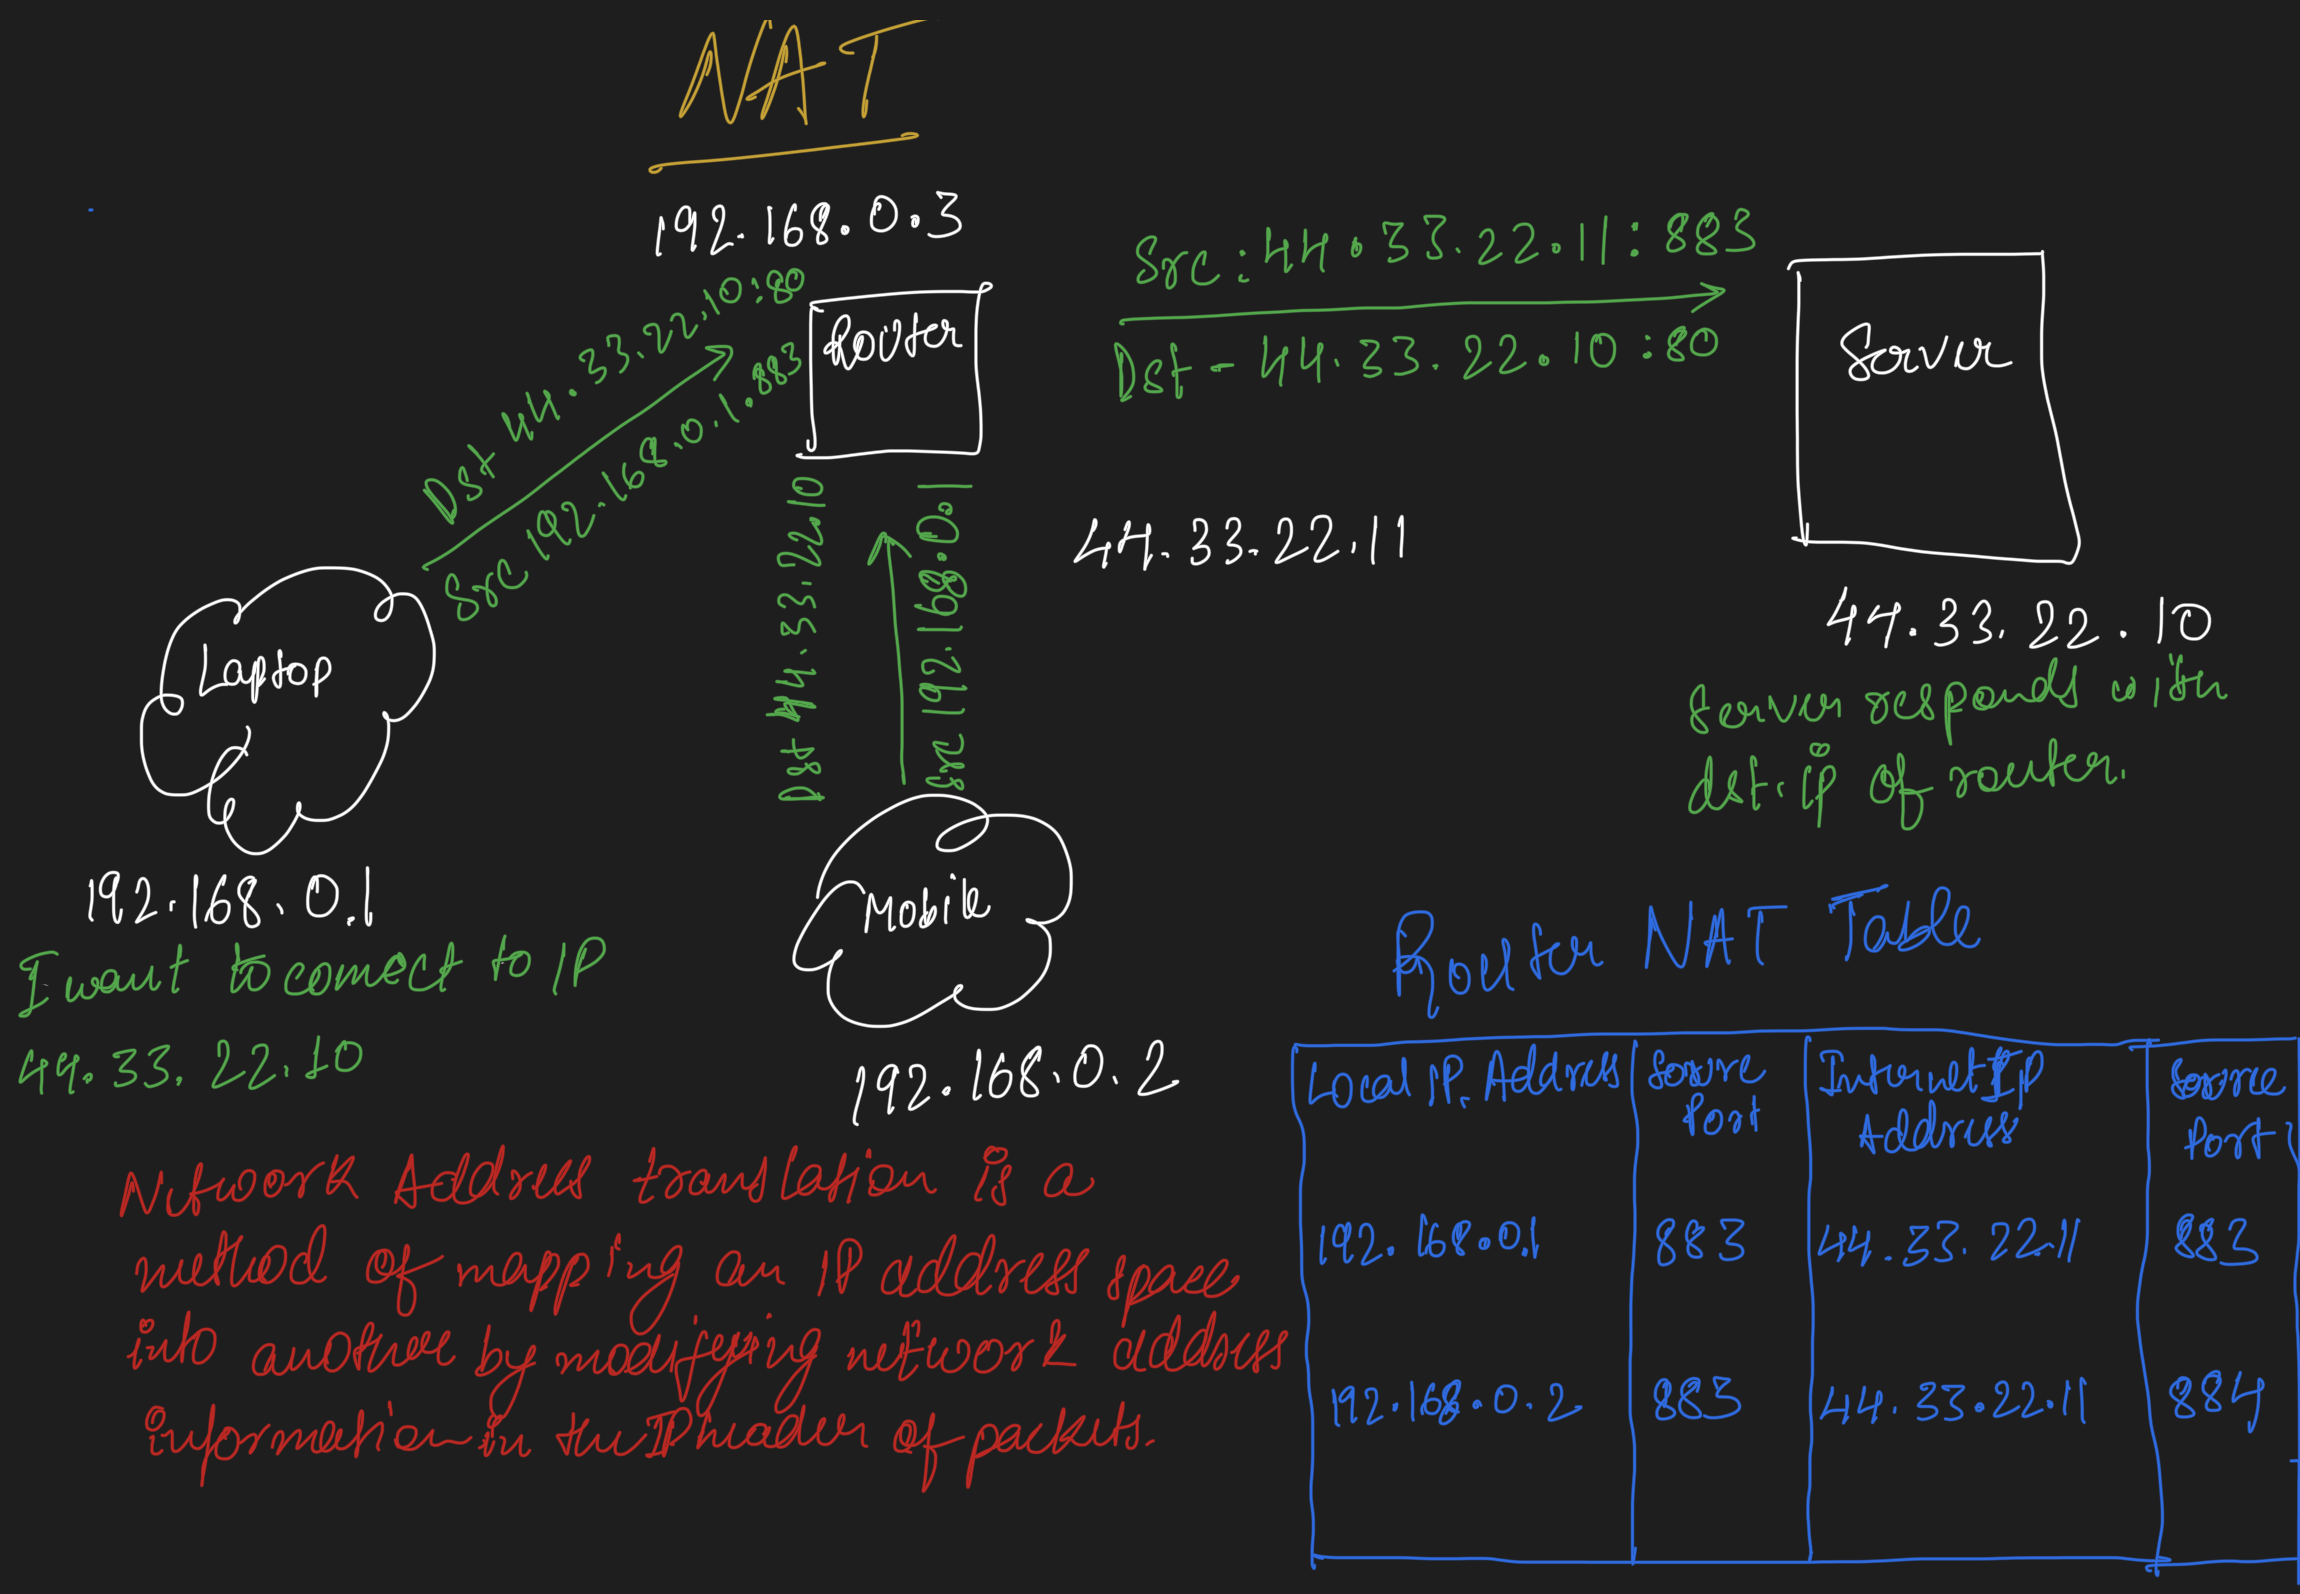 NAT
192.168.0.3
Dst 44.33.22.10:80
Src 192.168.0.1.883
Router
Src:44.33.22.11:883
Dst - 44.33.22.10:80
Server
Dst 44.33.22.10
Src 192.168.0.1
44.33.22.11
44.33.22.10
Server responds with
dst. ip of router.
Laptop
192.168.0.1
I want to connect to IP
44.33.22.10
Mobile
192.168.0.2
Network Address translation is a
method of mapping an IP address space
into another by modifying network address
information in the IP header of packets.
Router NAT Table
Local IP. Address Source Port Internet IP Address Source Port
192.168.0.1 883 44.33.22.11 883
192.168.0.2 883 44.33.22.11 884